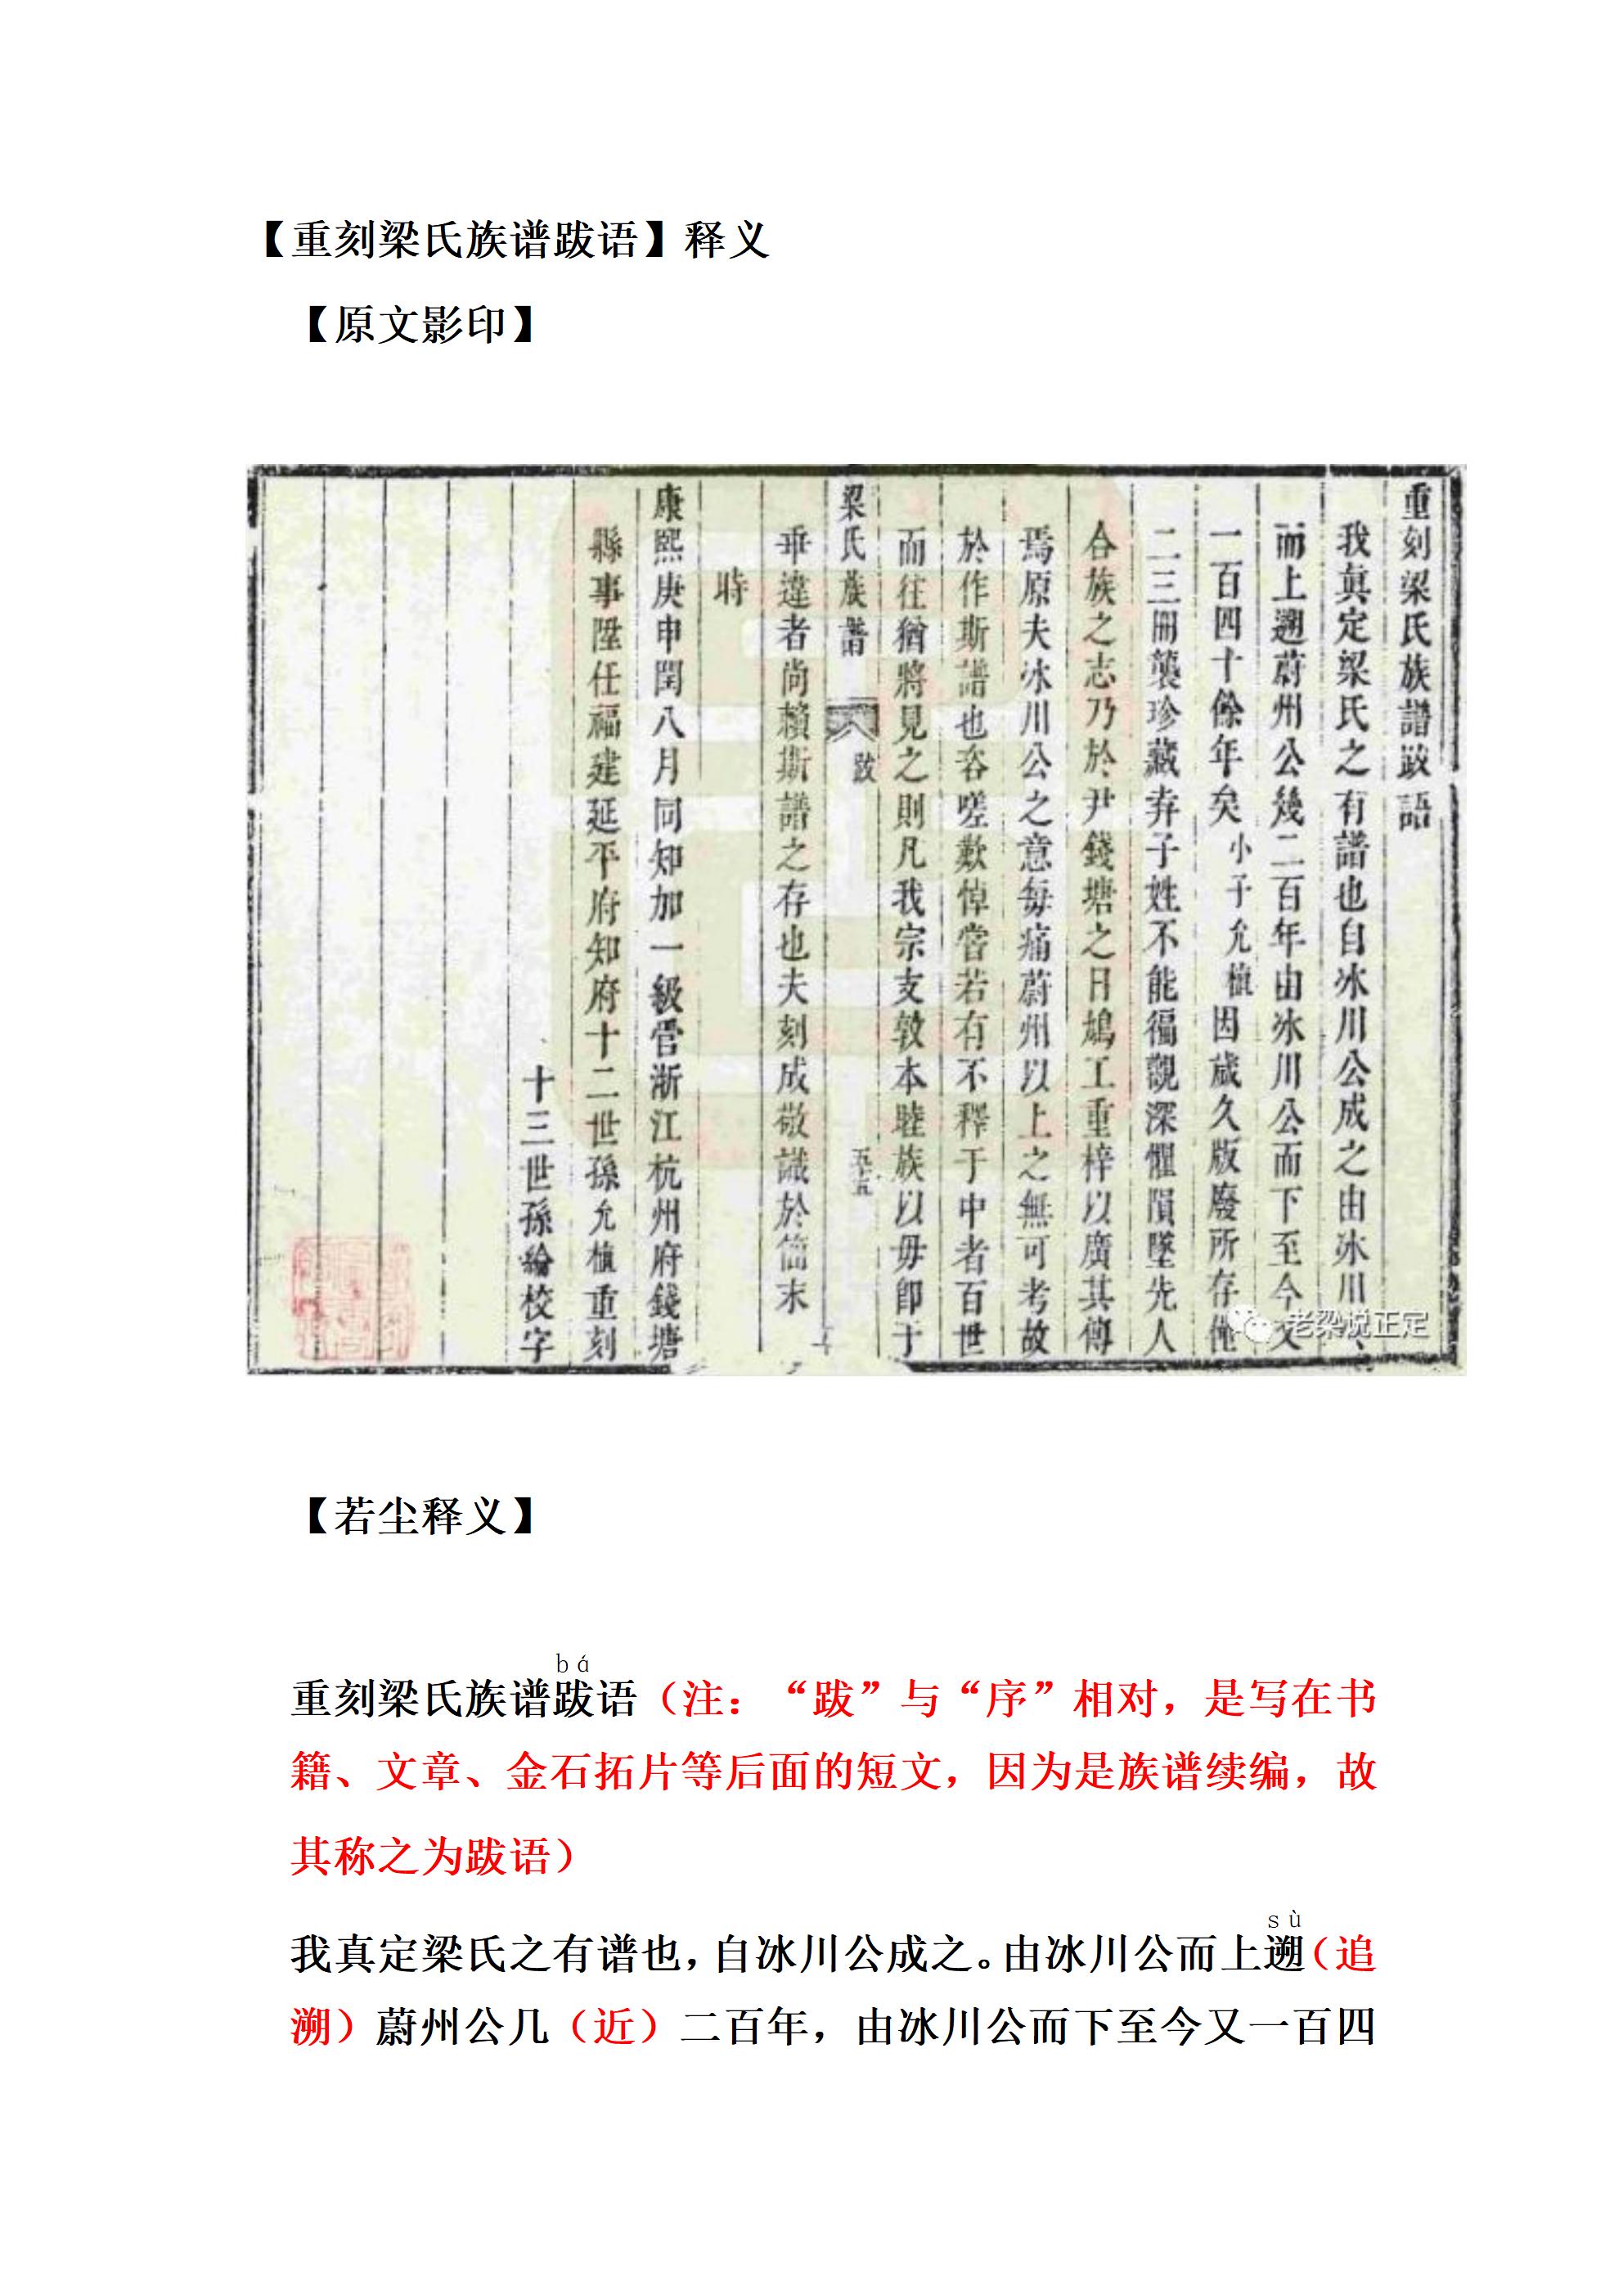 【重刻梁氏族谱跋语】释义
【原文影印】
重刻梁氏族譜跋語
我眞定梁氏之有譜也自冰川公成之由冰川公
而上遡蔚州公幾二百年由冰川公而下至今又
一百四十餘年矣小子允植因歲久版廢所存僅
二三冊襲珍藏弆子姓不能徧觀深懼隕墜先人
合族之志乃於尹錢塘之日鳩工重梓以廣其傳
焉原夫冰川公之意每痛蔚州以上之無可考故
於作斯譜也咨嗟歎悼嘗若有不釋于中者百世
而往猶將見之則凡我宗支敦本睦族以毋卽于
梁氏族譜 跋 五十五
乖違者尚賴斯譜之存也夫刻成敬識於簡末
時
康熙庚申閏八月同知加一級管浙江杭州府錢塘
縣事陞任福建延平府知府十二世孫允植重刻
十三世孫綸校字
老梁说正定
【若尘释义】
bá
重刻梁氏族谱跋语（注：“跋”与“序”相对，是写在书
籍、文章、金石拓片等后面的短文，因为是族谱续编，故
其称之为跋语）
sù
我真定梁氏之有谱也，自冰川公成之。由冰川公而上遡（追
溯）蔚州公几（近）二百年，由冰川公而下至今又一百四